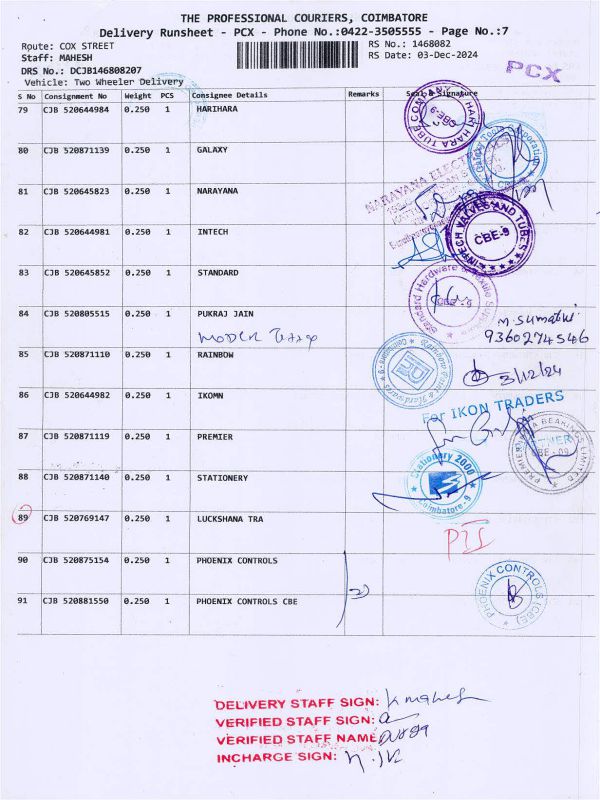 THE PROFESSIONAL COURIERS, COIMBATORE
Delivery Runsheet - PCX - Phone No.:0422-3505555 - Page No.:7
Route: COX STREET
RS No.: 1468082
Staff: MAHESH
RS Date: 03-Dec-2024
DRS No.: DCJB146808207
Vehicle: Two Wheeler Delivery
PCX
S No Consignment No Weight PCS Consignee Details Remarks Seal & Signature
79 CJB 520644984 0.250 1 HARIHARA
HARIHARA TUBE
80 CJB 520871139 0.250 1 GALAXY
Galaxy Tools Corporation
81 CJB 520645823 0.250 1 NARAYANA
NARAYANA
82 CJB 520644981 0.250 1 INTECH
INTECH VALVES AND TUBES
CBE-9
83 CJB 520645852 0.250 1 STANDARD
Standard Hardware & Textile
84 CJB 520805515 0.250 1 PUKRAJ JAIN
M. Sumathi
9360274546
85 CJB 520871110 0.250 1 RAINBOW
Rainbow Paints & Hardwares
Coimbatore - 9
3/12/24
86 CJB 520644982 0.250 1 IKOMN
For IKON TRADERS
87 CJB 520871119 1 PREMIER
0.250
PREMIER BEARINGS LIMITED
88 CJB 520871140 0.250 1 STATIONERY
Stationary 2000
Coimbatore - 9
89 CJB 520769147 0.250 1 LUCKSHANA TRA
90 CJB 520875154 0.250 1 PHOENIX CONTROLS
91 CJB 520881550 0.250 1 PHOENIX CONTROLS CBE
PHOENIX CONTROLS (CBE)
DELIVERY STAFF SIGN: K mahesh
VERIFIED STAFF SIGN:
VERIFIED STAFF NAME
INCHARGE SIGN: